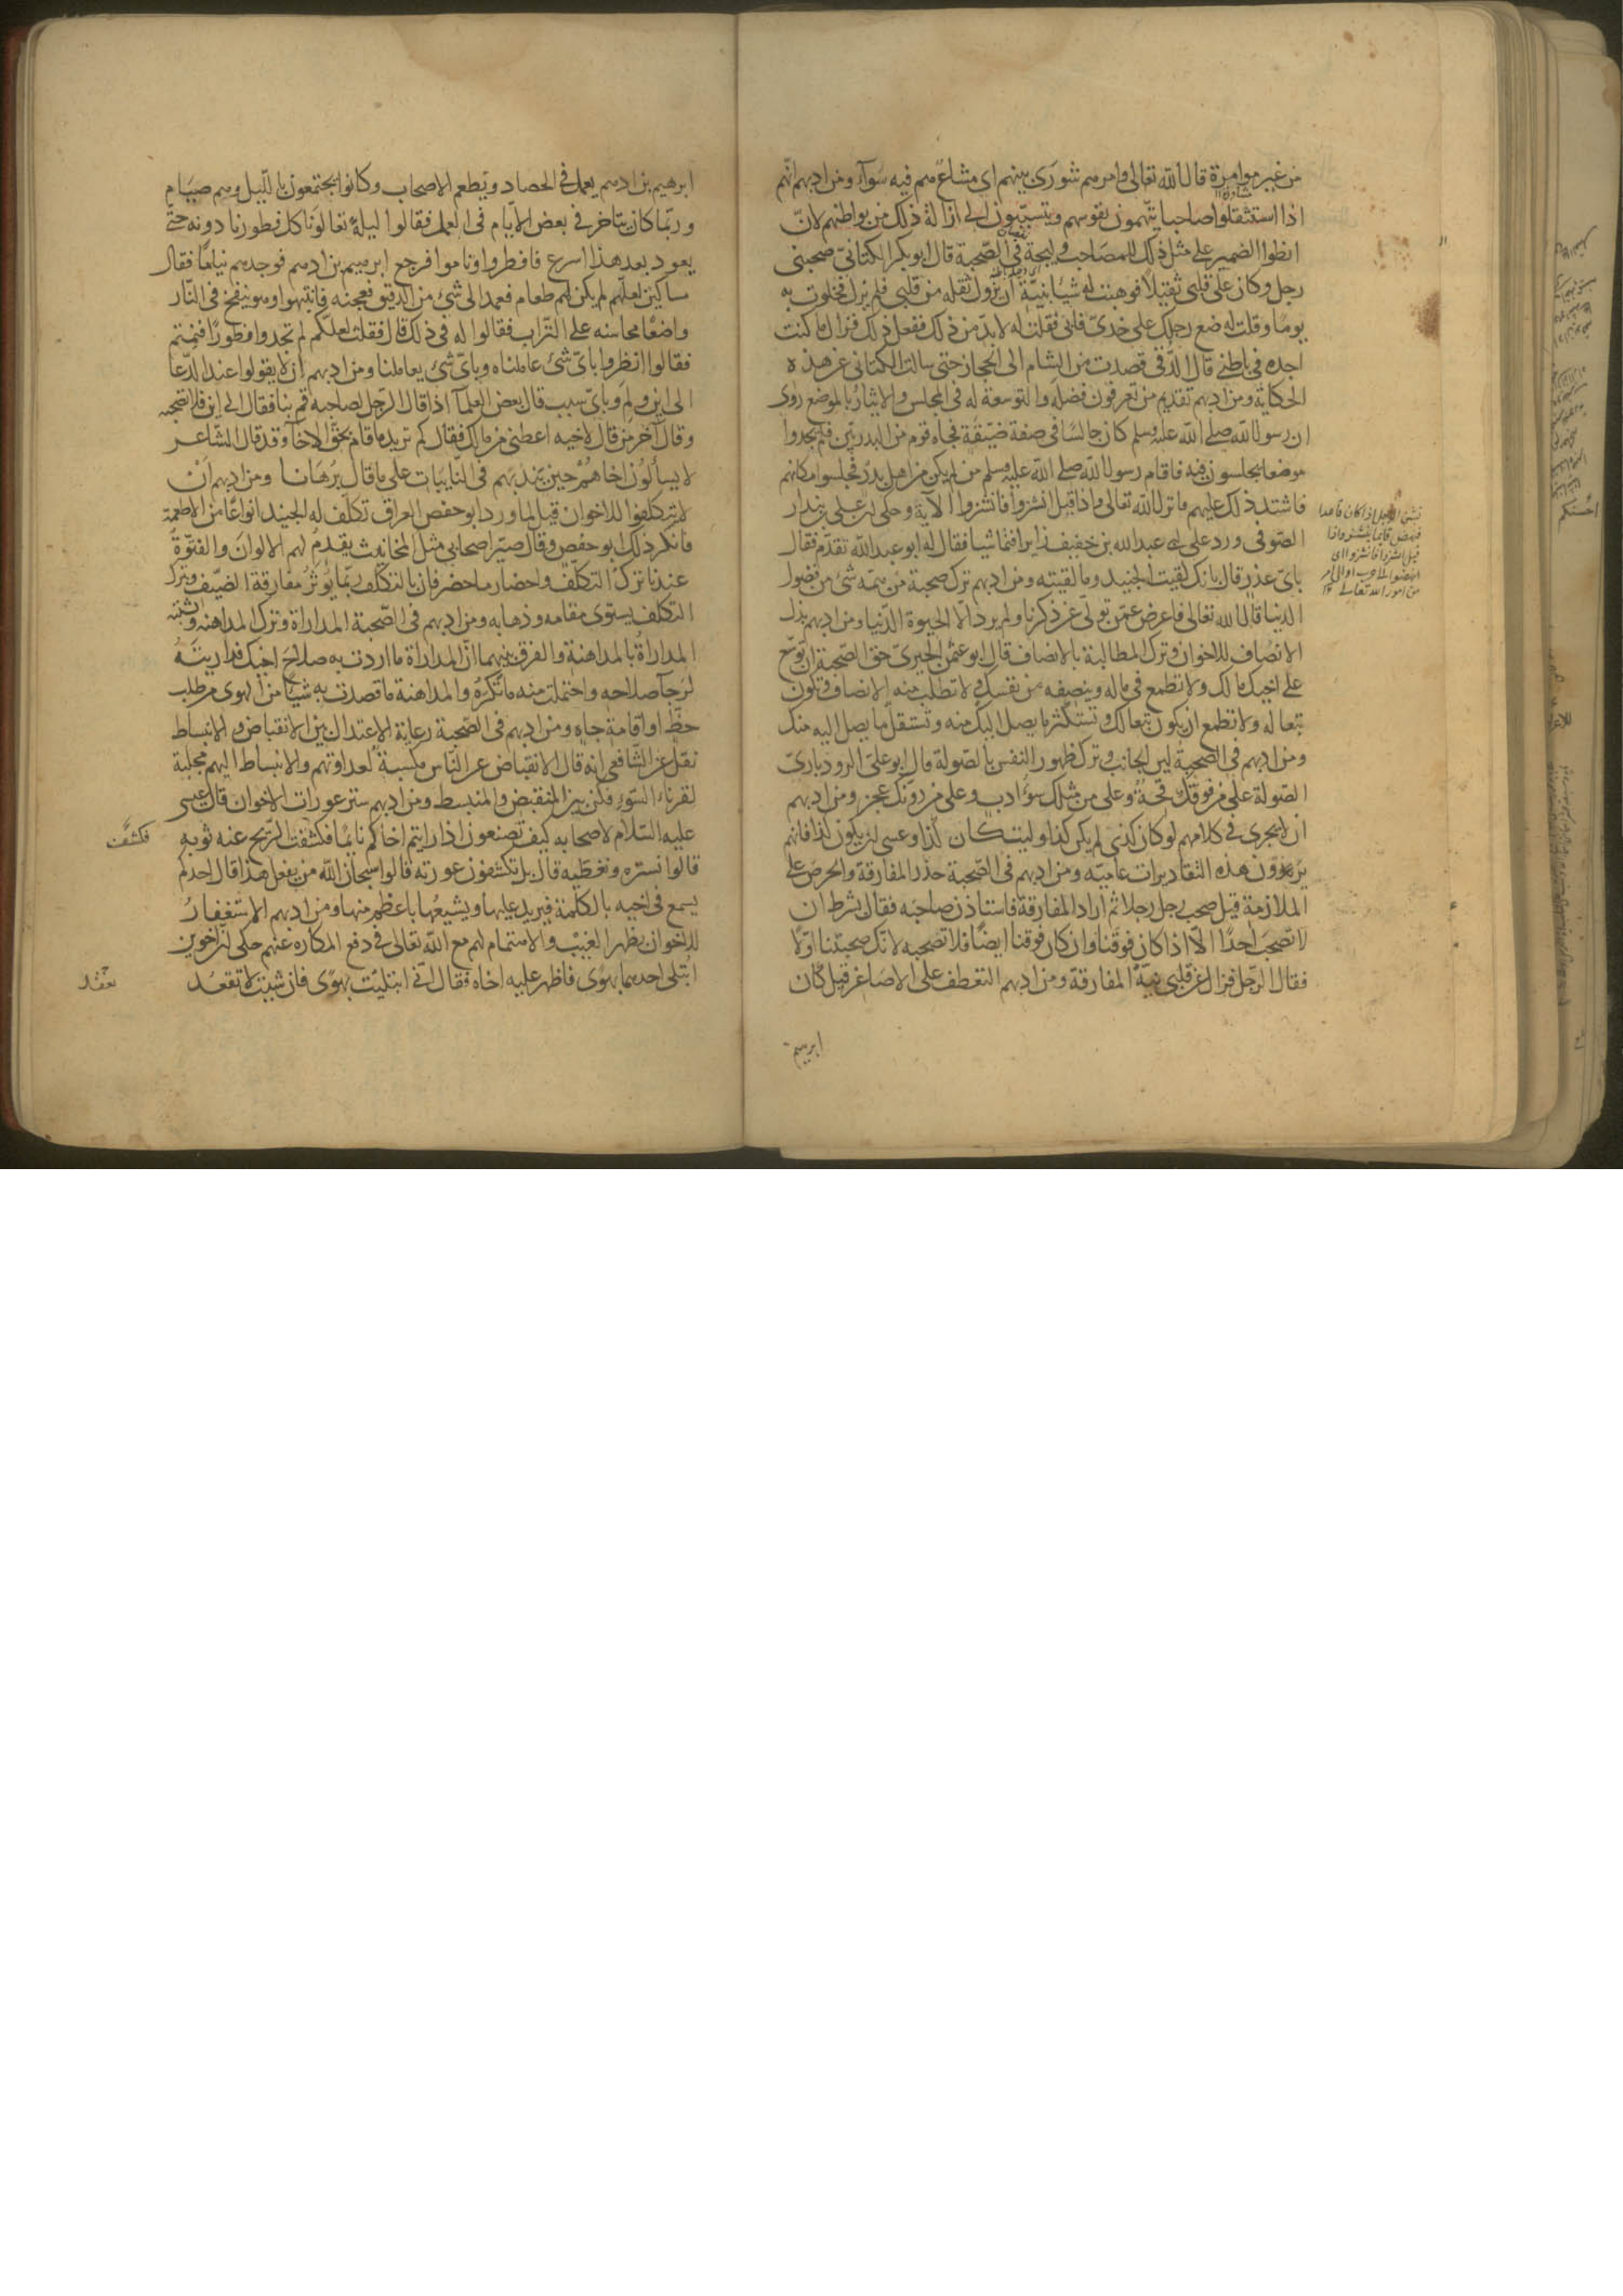 من غير موامرة قال الله تعالى وامرهم شورى بينهم اى مشاع هم فيه سواء ومن ادبهم انهم
اذا استثقلوا صاحبا يتهمون نفوسهم ويتسببون الى ازالة ذلك من بواطنهم لان
انطوا الضمير على مثل ذلك للمصاحب وليجة فى الصحبة قال ابو بكر الكتانى صحبنى
رجل وكان على قلبى ثقيلا فوهبت له شيا بنية ان يزول ثقله من قلبى فلم يزل فخلوت به
يوما وقلت له ضع رجلك على خدى فابى فقلت له لابد من ذلك ففعل ذلك فزال ما كنت
اجده فى باطنى قال الدقى قصدت من الشام الى الحجاز حتى سالت الكتانى عن هذه
الحكاية ومن ادبهم تقديم من تعرفون فضله والتوسعة له فى المجلس والايثار بالموضع روى
ان رسول الله صلى الله عليه وسلم كان جالسا فى صفة ضيقة فجاه قوم من البدريين فلم يجدوا
موضعا يجلسون فيه فاقام رسول الله صلى الله عليه وسلم من لم يكن من اهل بدر فجلسوا مكانهم
فاشتد ذلك عليهم فانزل الله تعالى واذا قيل انشزوا فانشزوا الآية وحكى ان على بن بندار
الصوفى ورد على ابى عبد الله بن خفيف زايرا فتماشيا فقال له ابو عبد الله تقدم فقال
باى عذر قال بانك لقيت الجنيد وما لقيته ومن ادبهم ترك صحبة من همه شئ من فضول
الدنيا قال الله تعالى فاعرض عمن تولى عن ذكرنا ولم يرد الا الحيوة الدنيا ومن ادبهم بذل
الانصاف للاخوان وترك المطالبة بالانصاف قال ابو عثمن الحيرى حق الصحبة ان توسع
على اخيك مالك ولا تطمع فى ماله وينصفه من نفسك ولا تطلب منه الانصاف وتكون
تبعا له ولا تطمع ان يكون تبعا لك وتستكثر ما يصل اليك منه وتستقل ما يصل اليه منك
ومن ادبهم فى الصحبة لين الجانب وترك ظهور النفس بالصولة قال ابو على الروذبارى
الصولة على من فوقك قحة وعلى من مثلك سوء ادب وعلى من دونك عجز ومن ادبهم
ان لا يجرى فى كلامهم لو كان كذى لم يكن كذا وليت كان كذا وعسى ان يكون كذا فانهم
يرون هذه التقديرات عامية ومن ادبهم فى الصحبة حذر المفارقة والحرص على
الملازمة قيل صحب رجل رجلا ثم اراد المفارقة فاستاذن صاحبه فقال بشرط ان
لا تصحب احدا الا اذا كان فوقنا وان كان فوقنا ايضا فلا تصحبه لانك صحبتنا اولا
فقال الرجل فزال عن قلبى نية المفارقة ومن ادبهم التعطف على الاصاغر قيل كان
ابرهيم
نشز الرجل اذا كان قاعدا
فنهض قائما ينشز واذا
قيل انشزوا فانشزوا اى
انهضوا الى حرب او الى امر
من امور الله تعالى
ابرهيم بن ادهم يعمل فى الحصاد ويطعم الاصحاب وكانوا يجتمعون بالليل وهم صيام
وربما كان يتاخر فى بعض الايام فى العمل فقالوا ليلة تعالوا ناكل فطورنا دونه حتى
يعود بعد هذا اسرع فافطروا وناموا فرجع ابرهيم بن ادهم فوجدهم نياما فقال
مساكين لعلهم لم يكن لهم طعام فعمد الى شئ من الدقيق فعجنه فانتبهوا وهو ينفخ فى النار
واضعا محاسنه على التراب فقالوا له فى ذلك قال فقلت لعلكم لم تجدوا فطورا فنمتم
فقالوا انظروا باى شئ عاملناه وباى شئ يعاملنا ومن ادبهم ان لا يقولوا عند الدعا
الى اين ولم وباى سبب قال بعض العلماء اذا قال الرجل لصاحبه قم بنا فقال الى اين فلا تصحبه
وقال آخر من قال لاخيه اعطنى من مالك فقال كم تريد ما قام بحق الاخاء وقد قال الشاعر
لا يسالون اخاهم حين يندبهم فى النايبات على ما قال برهانا ومن ادبهم ان
لا يتكلفوا للاخوان قيل لما ورد ابو حفص العراق تكلف له الجنيد انواعا من الاطعمة
فانكر ذلك ابو حفص وقال صير اصحابى مثل المخانيث يقدم لهم الالوان والفتوة
عندنا ترك التكلف واحضار ما حضر فان بالتكلف ربما يؤثر مفارقة الضيف وترك
التكلف يستوى مقامه وذهابه ومن ادبهم فى الصحبة المداراة وترك المداهنة وتشتبه
المداراة بالمداهنة والفرق بينهما ان المداراة ما اردت به صلاح اخيك فداريته
لرجاء صلاحه واحتملت منه ما تكره والمداهنة ما قصدت به شيا من الهوى من طلب
حظ او اقامة جاه ومن ادبهم فى الصحبة رعاية الاعتدال بين الانقباض والانبساط
نقل عن الشافعى انه قال الانقباض عن الناس مكسبة لعداوتهم والانبساط اليهم مجلبة
لقرناء السوء فكن بين المنقبض والمنبسط ومن ادبهم ستر عورات الاخوان قال عيسى
عليه السلام لاصحابه كيف تصنعون اذا رايتم اخاكم نايما فكشفت الريح عنه ثوبه
قالوا نستره ونغطيه قال بل تكشفون عورته قالوا سبحان الله من يفعل هذا قال احدكم
يسمع فى اخيه بالكلمة فيزيد عليها ويشيعها باعظم منها ومن ادبهم الاستغفار
للاخوان بظهر الغيب والاهتمام لهم مع الله تعالى فى دفع المكاره عنهم حكى ان اخوين
ابتلى احدهما بهوى فاظهر عليه اخاه فقال انى ابتليت بهوى فان شئت لا تقعد
فكشفت